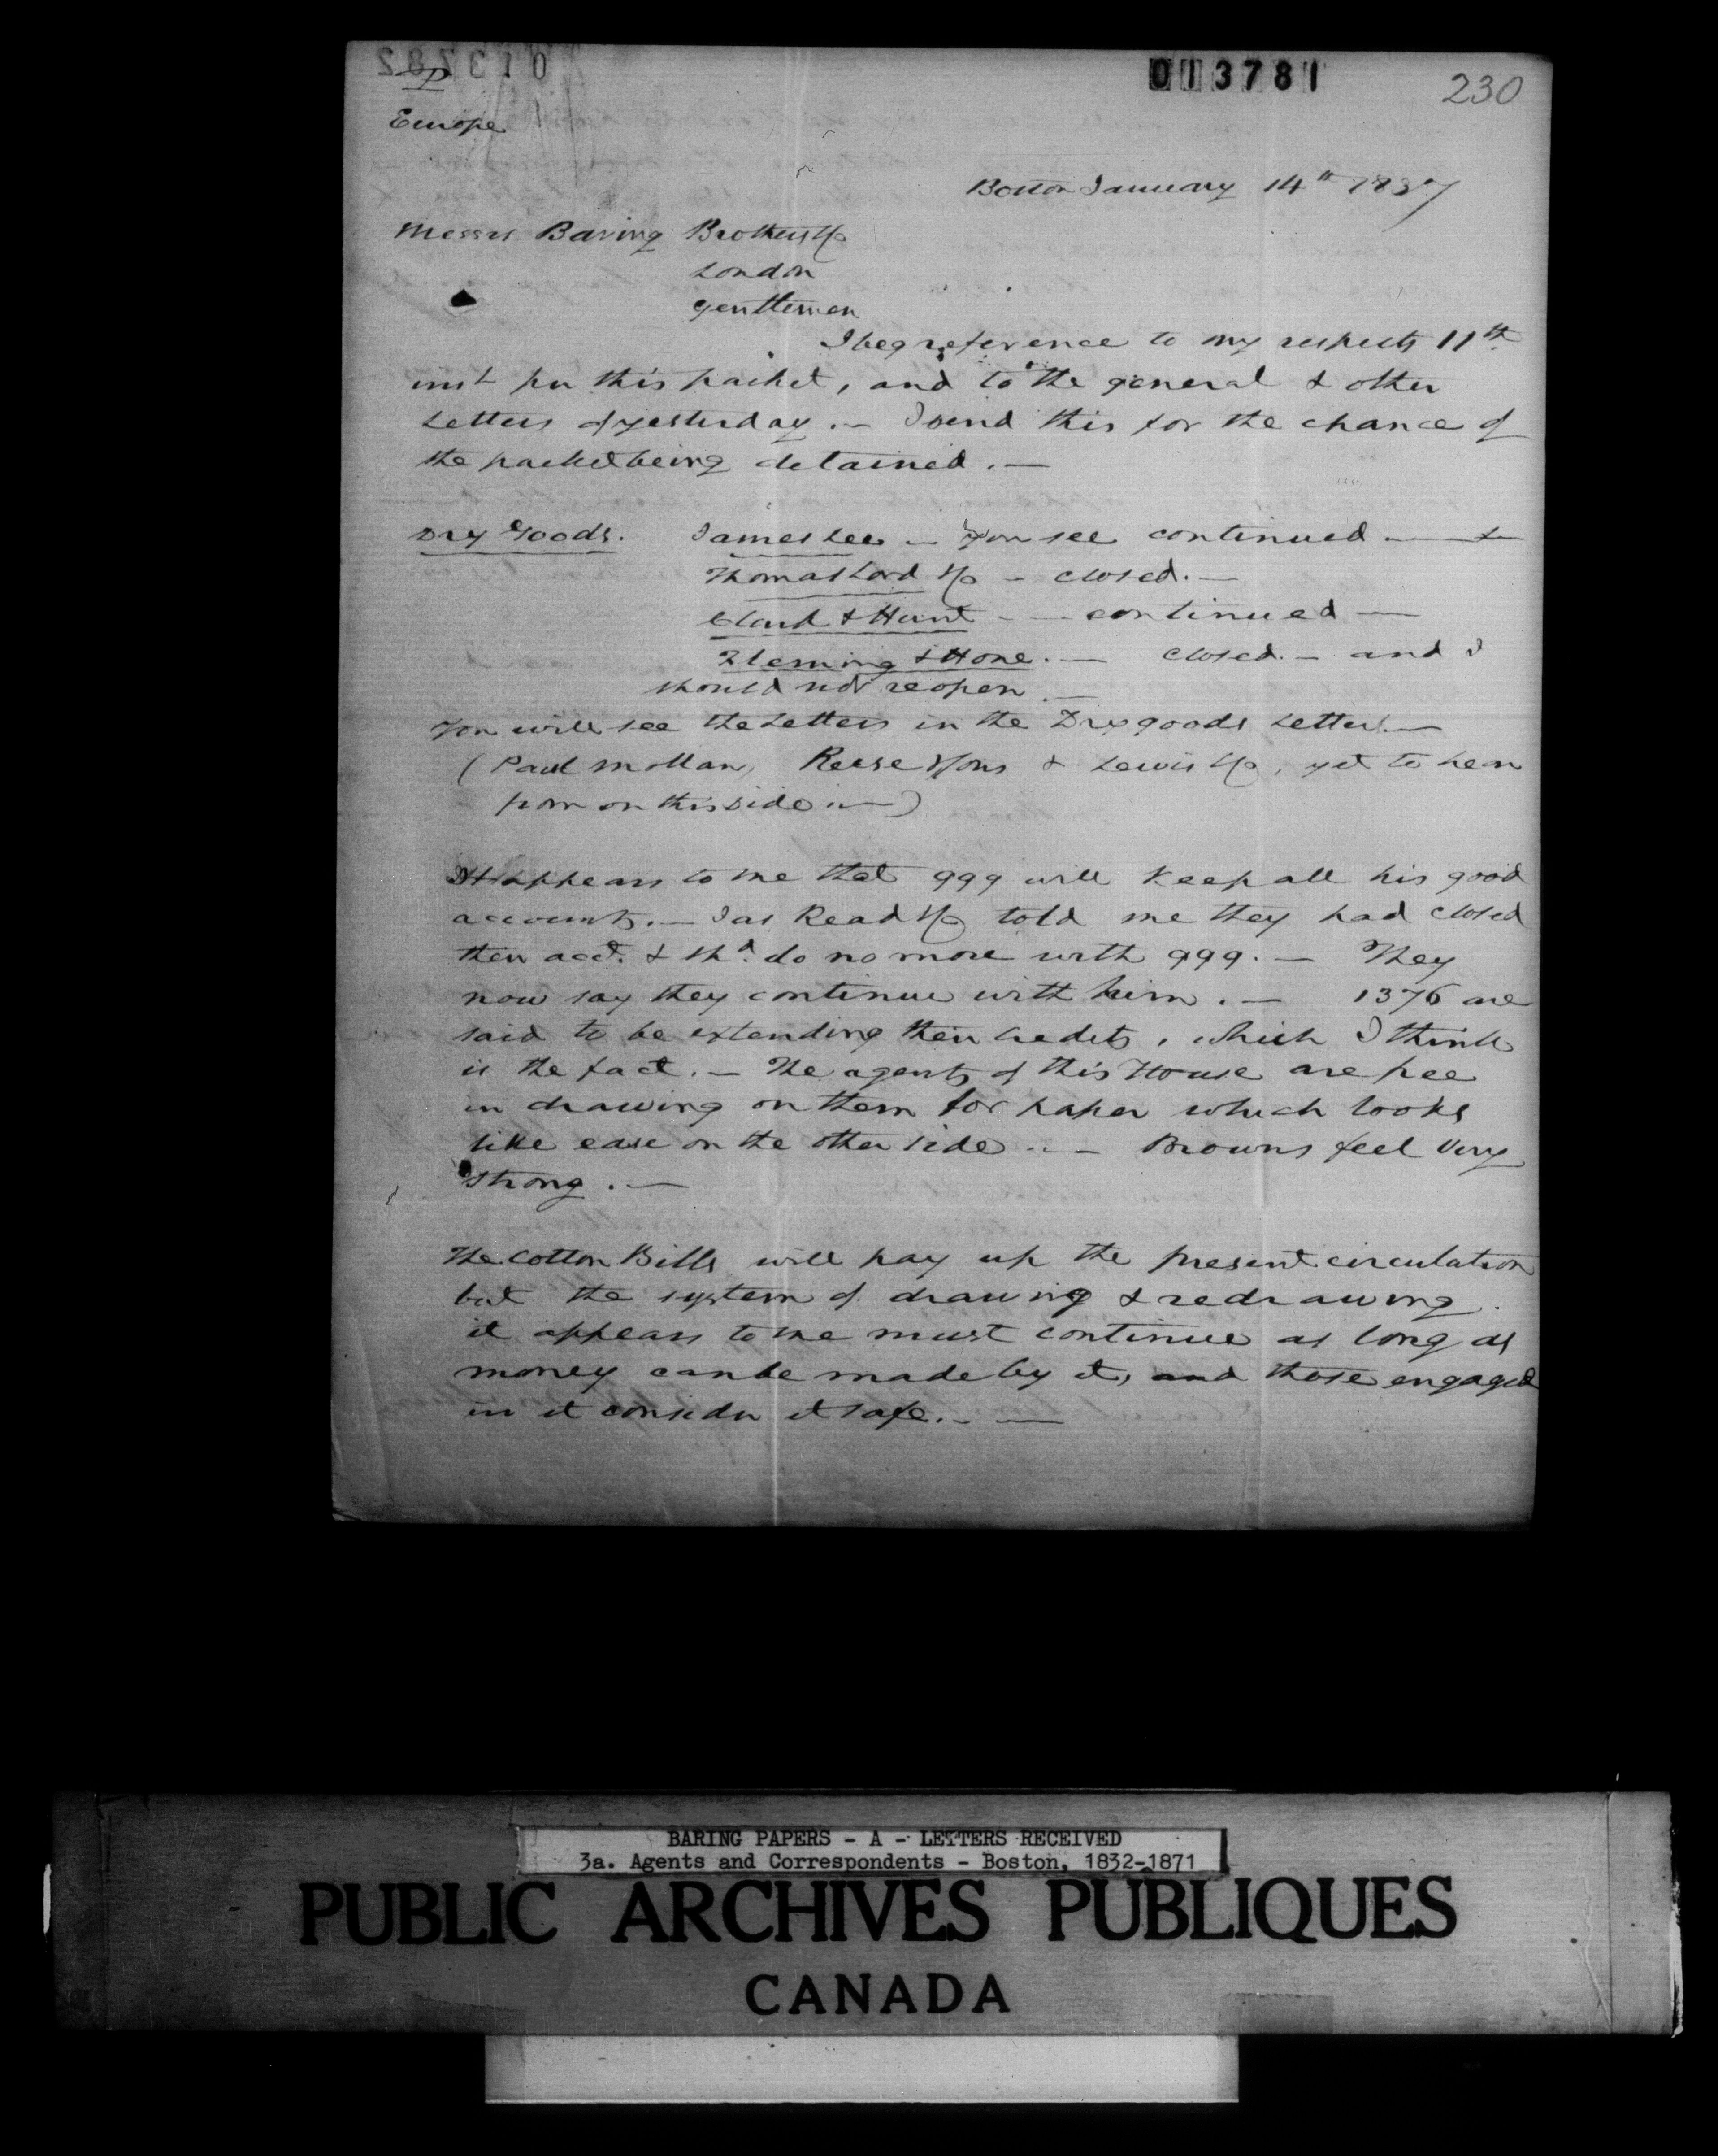 013781
230
P
Europe
Boston January 14th 1837
Messrs Baring Brothers & Co
London
Gentlemen
I beg reference to my respects 11th
inst per this packet, and to the general & other
Letters of yesterday. — I send this for the chance of
the packet being detained. —
Dry Goods. James Lee — You see continued — &
Thomas Lord & Co — closed. —
Clark & Hunt — continued —
Fleming & Hone. — closed. — and I
should not reopen —
You will see the Letters in the Dry goods Letter. —
(Paul Mollan, Reese & Sons & Lewis & Co, yet to hear
from on this side. —)
It appears to me that 999 will keep all his good
accounts. — Jas Read & Co told me they had closed
their acct. & shd. do no more with 999. — They
now say they continue with him. — 1376 are
said to be extending their credits, which I think
is the fact. — The agents of this House are free
in drawing on them for paper which looks
like ease on the other side. — Browns feel very
strong. —
The Cotton Bills will pay up the present circulation
but the system of drawing & redrawing
it appears to me must continue as long as
money can be made by it, and those engaged
in it consider it safe. —
BARING PAPERS - A - LETTERS RECEIVED
3a. Agents and Correspondents - Boston, 1832-1871
PUBLIC ARCHIVES PUBLIQUES
CANADA